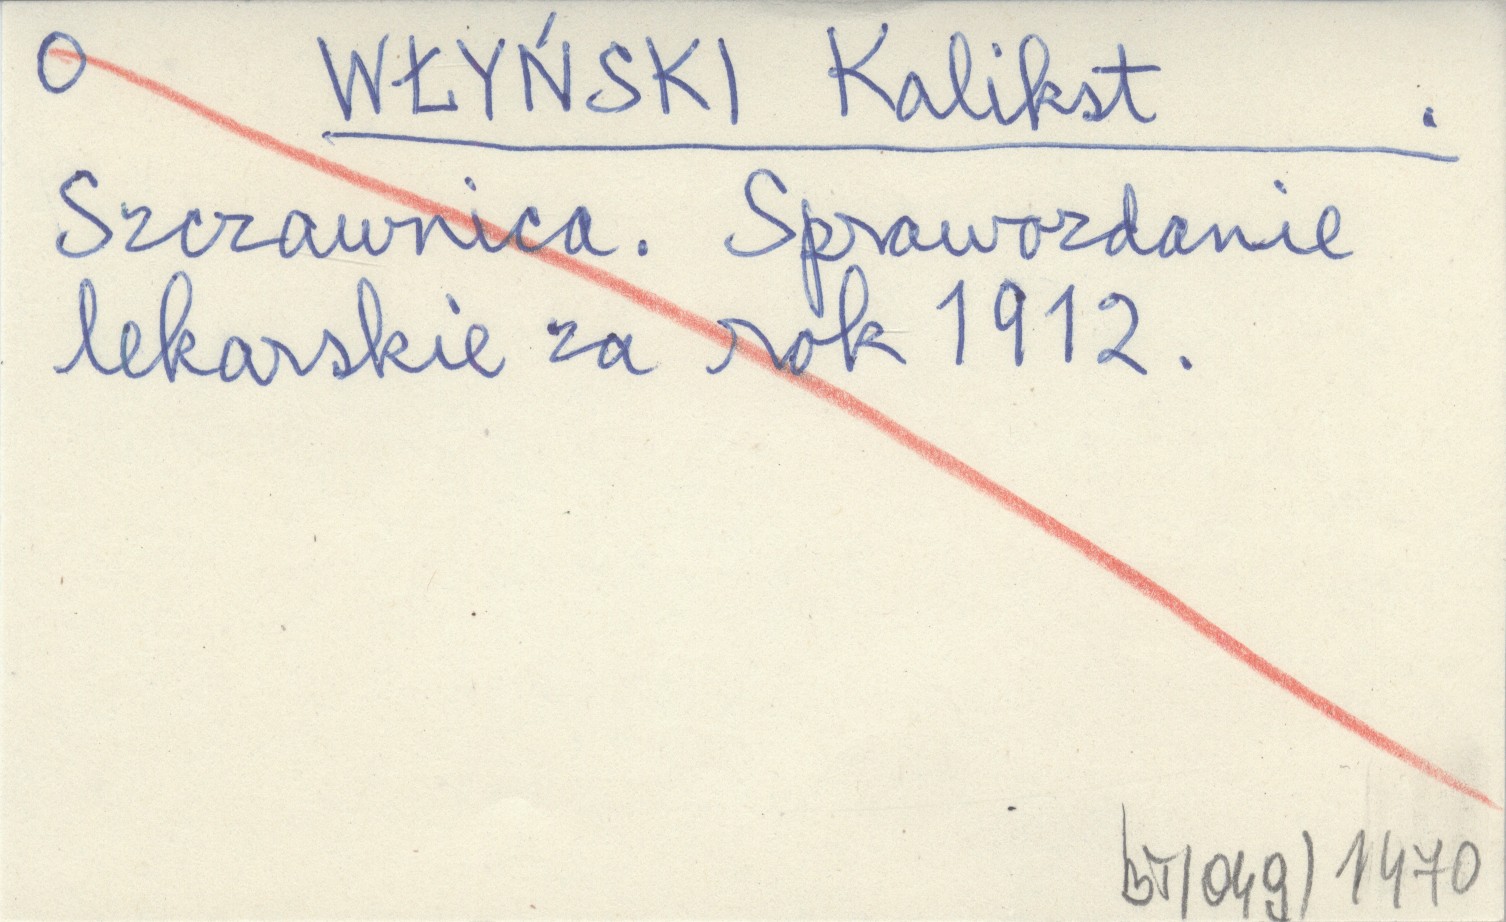 O WŁYŃSKI Kalikst .
Szczawnica. Sprawozdanie
lekarskie za rok 1912.
(049) 1470